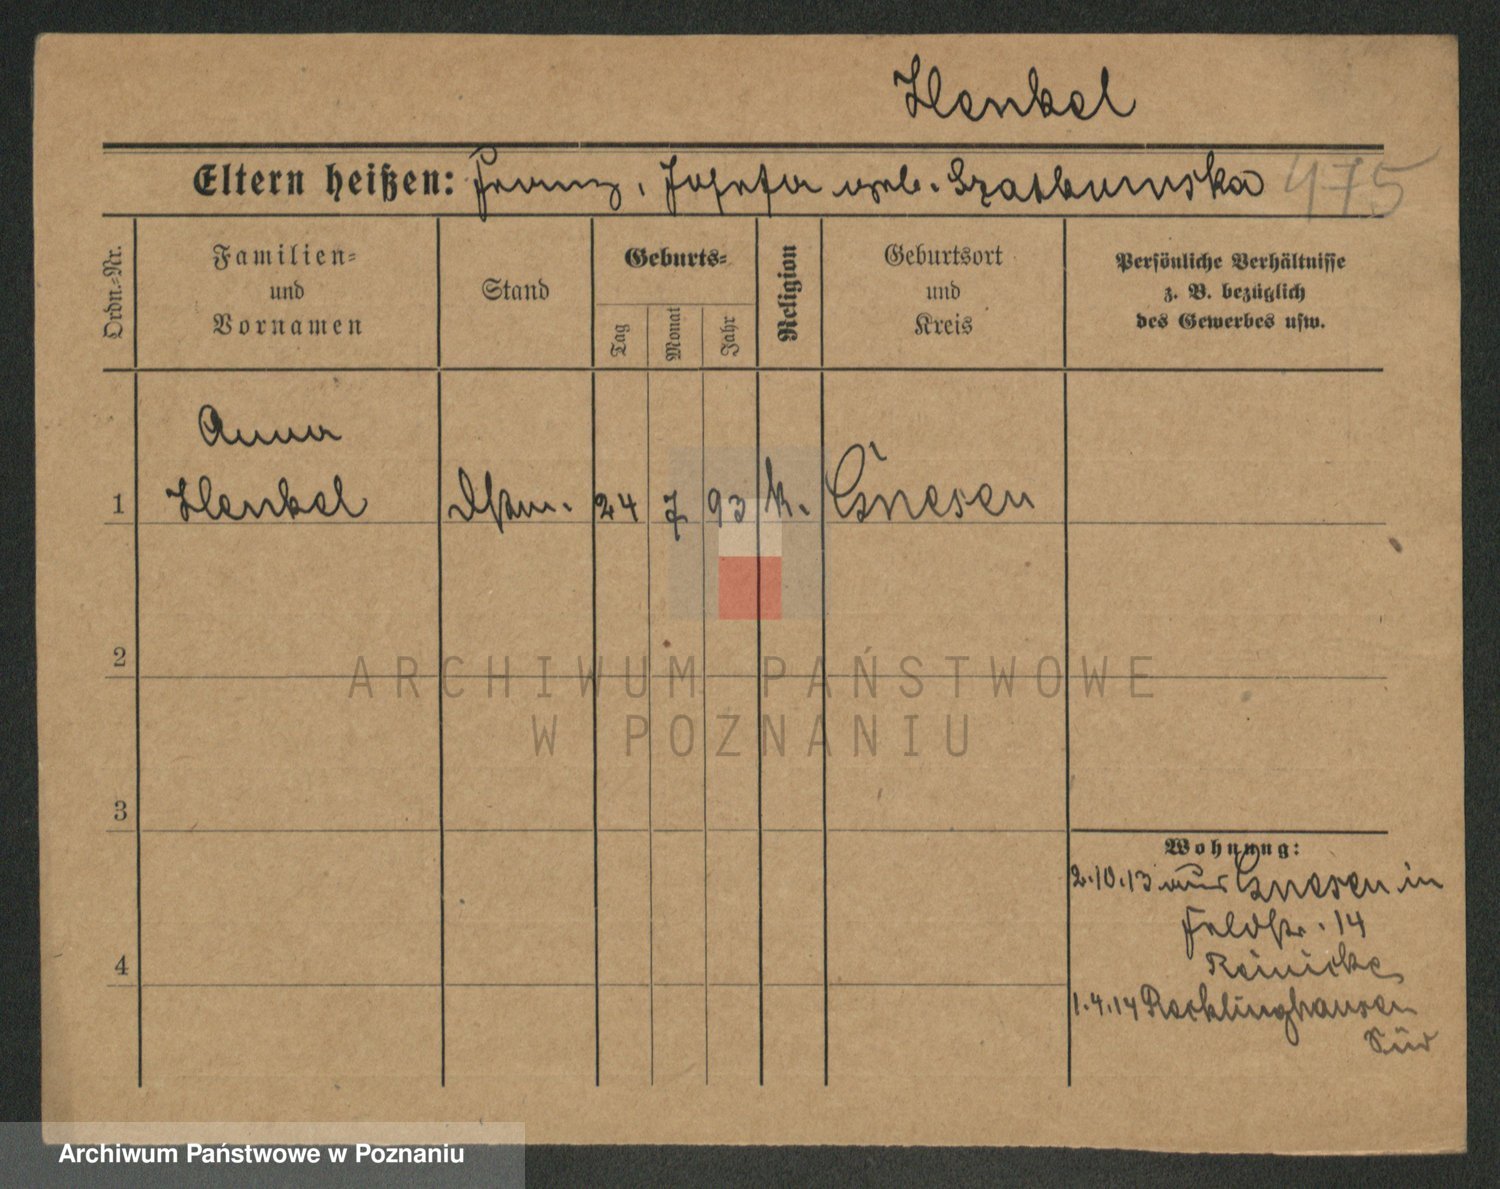 Henkel
Eltern heißen: Franz, Josefa geb. 475
Ordn.-Nr.
Familien-
und
Vornamen
Stand
Geburts-
Tag
Monat
Jahr
Religion
Geburtsort
und
Kreis
Persönliche Verhältnisse
z. B. bezüglich
des Gewerbes usw.
Anna
1 Henkel Dstm. 24 7 93 k. Gnesen
2
3
4
Wohnung:
2.10.13 aus Gnesen in
Feldstr. 14
Reinicke
1.4.14 Recklinghausen
Süd
ARCHIWUM PAŃSTWOWE
W POZNANIU
Archiwum Państwowe w Poznaniu